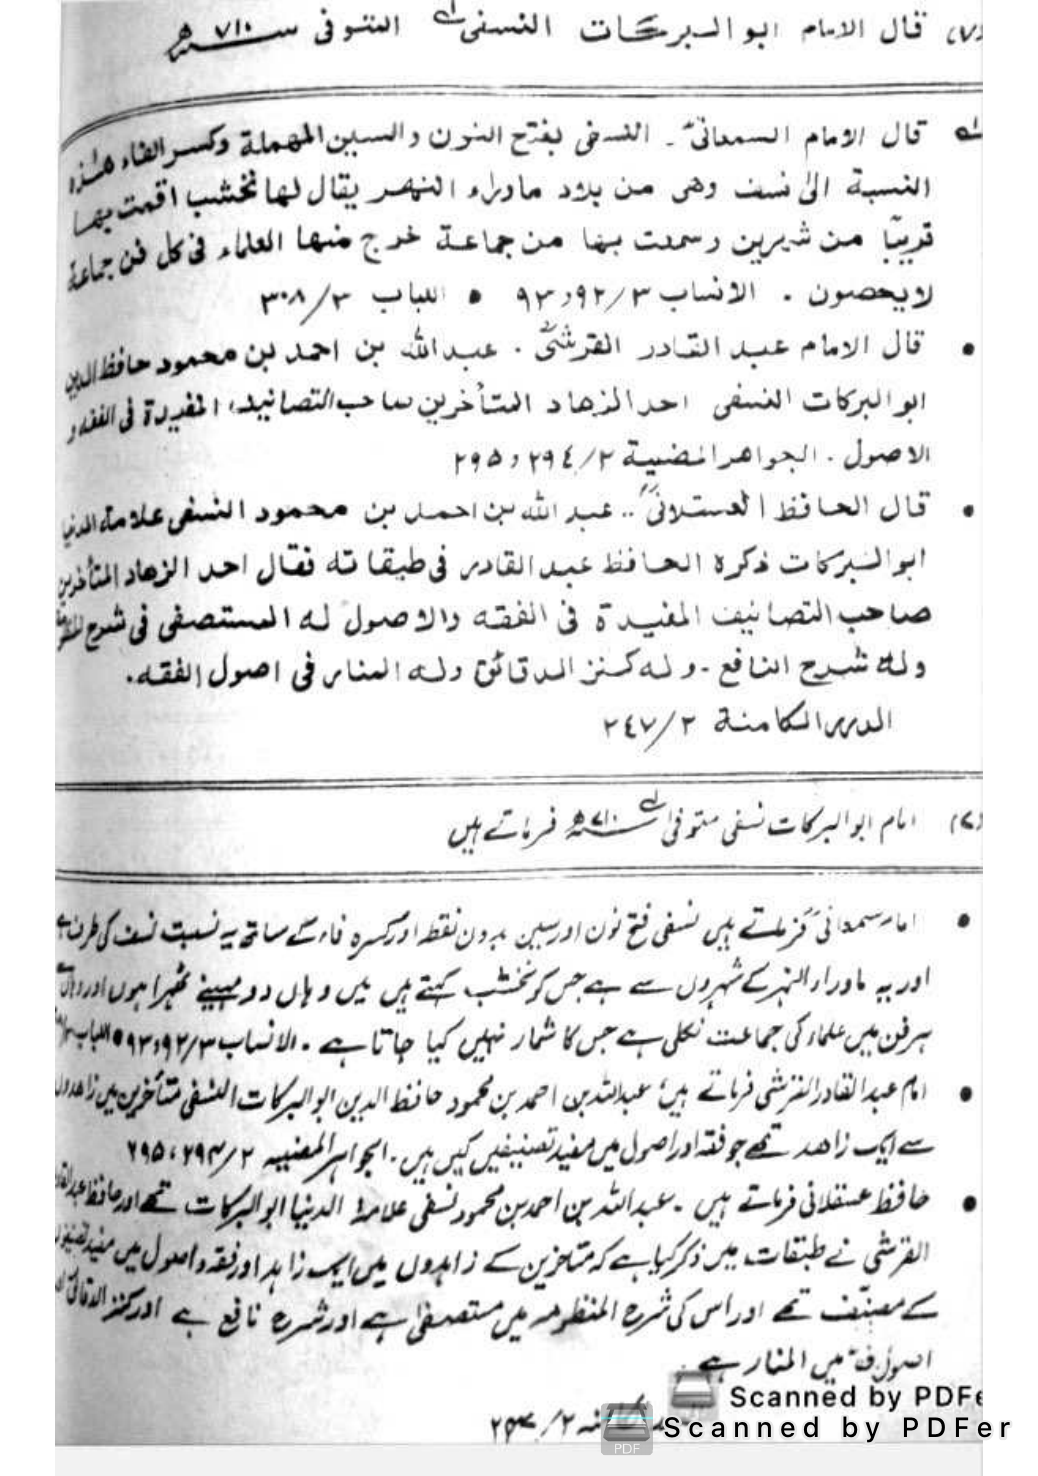 (۷) قال الامام ابو البركات النسفى المتوفى ۷۱۰ھ
قال الامام السمعانىؒ ـ النسفى بفتح النون والسين المهملة وكسر الفاء هذه
النسبة الىٰ نسف وهى من بلاد ماوراء النهر يقال لها نخشب اقمت بها
قريبًا من شهرين وسمعت بها من جماعة خرج منها العلماء فى كل فن جماعة
لا يحصون ۔ الانساب ۳/۹۲و۹۳ • اللباب ۳/۳۰۸
• قال الامام عبد القادر القرشىؒ ۔ عبد الله بن احمد بن محمود حافظ الدين
ابو البركات النسفى احد الزهاد المتأخرين صاحب التصانيف المفيدة فى الفقه و
الاصول ۔ الجواهر المضية ۲/۲۹٤ و ۲۹٥
• قال الحافظ العسقلانىؒ ۔۔ عبد الله بن احمد بن محمود النسفى علامة الدنيا
ابو البركات ذكره الحافظ عبد القادر فى طبقاته فقال احد الزهاد المتأخرين
صاحب التصانيف المفيدة فى الفقه والاصول له المستصفى فى شرح المنظومة
وله شرح النافع ۔ وله كنز الدقائق وله المنار فى اصول الفقه ۔
الدرر الكامنة ۲/۲٤۷
(۷) امام ابو البرکات نسفی متوفی ۷۱۰ھ فرماتے ہیں
• امام سمعانیؒ فرماتے ہیں نسفی فتح نون اور سین بدون نقطہ اور کسرہ فاء کے ساتھ یہ نسبت نسف کی طرف ہے
اور یہ ماوراء النہر کے شہروں سے ہے جس کو نخشب کہتے ہیں میں وہاں دو مہینے ٹھہرا ہوں اور وہاں
ہر فن میں علماء کی جماعت نکلی ہے جس کا شمار نہیں کیا جاتا ہے ۔ الانساب ۳/۹۲و۹۳ • اللباب
• امام عبد القادر القرشی فرماتے ہیں؛ عبد اللہ بن احمد بن محمود حافظ الدین ابو البرکات النسفی متأخرین میں زاھدوں
سے ایک زاھد تھے جو فقہ اور اصول میں مفید تصنیفیں کیں ہیں ۔ الجواہر المضیہ ۲/۲۹۴، ۲۹۵
• حافظ عسقلانی فرماتے ہیں ۔ عبد اللہ بن احمد بن محمود نسفی علامۃ الدنیا ابو البرکات تھے اور حافظ عبد القادر
القرشی نے طبقات میں ذکر کیا ہے کہ متاخرین کے زاہدوں میں ایک زاہد اور فقہ و اصول میں مفید تصنیفوں
کے مصنف تھے اور اس کی شرح المنظومہ میں مستصفیٰ ہے اور شرح نافع ہے اور کنز الدقائق اور
اصول فقہ میں المنار ہے ۔
Scanned by PDFe
Scanned by PDFer
PDF